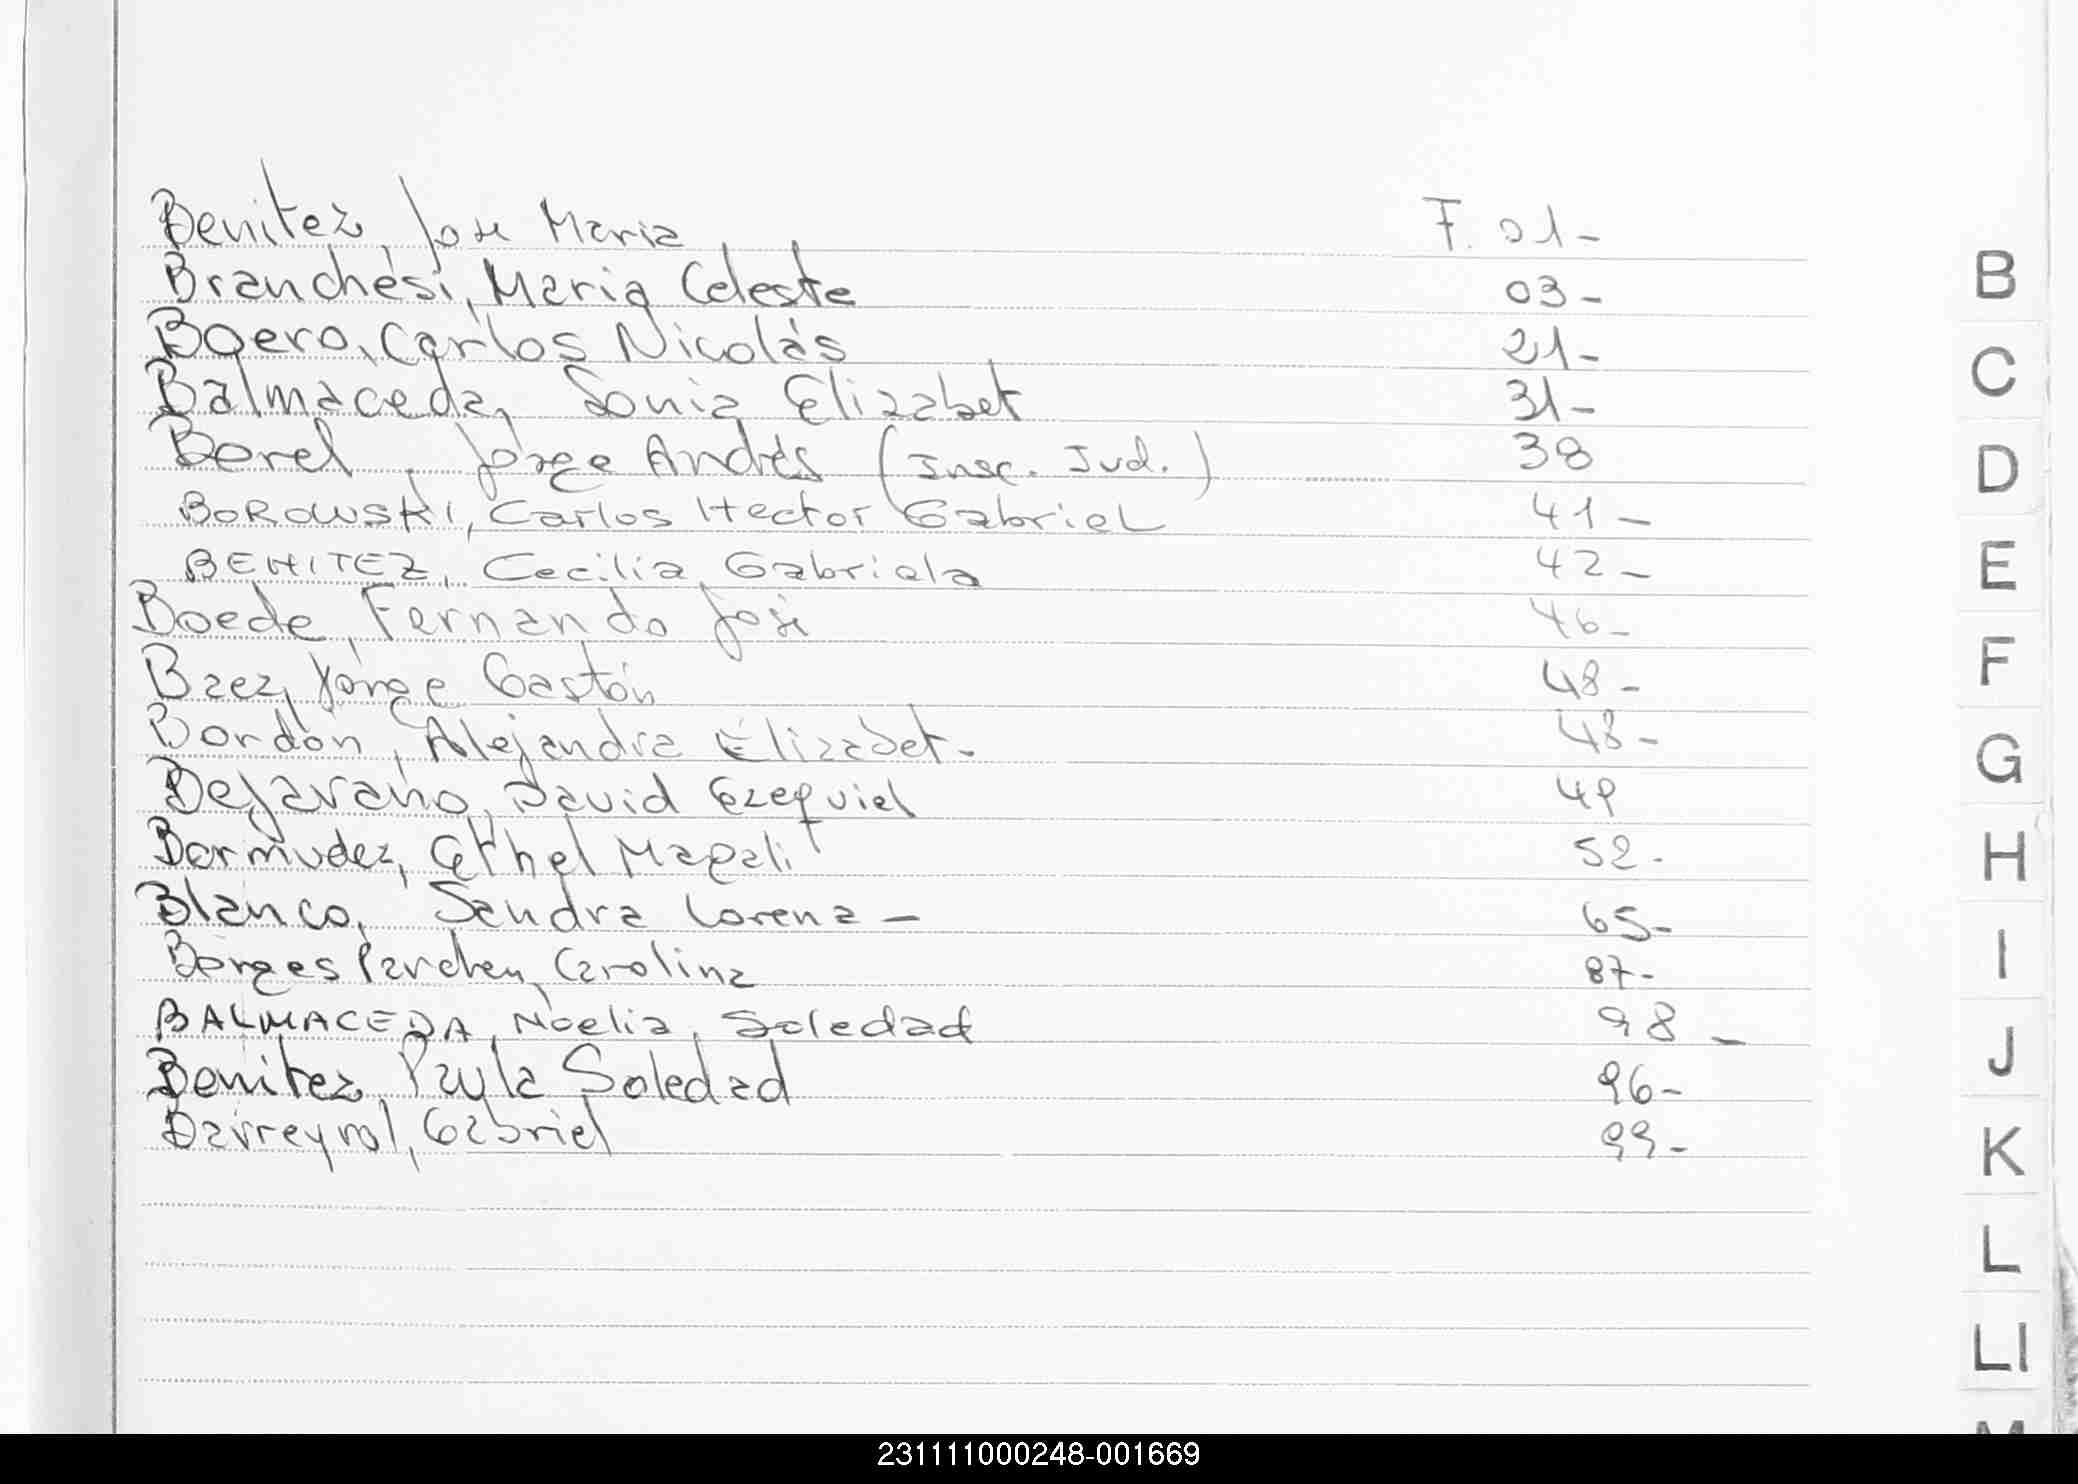 Benitez, Jose Maria F. 01-
Branchesi, Maria Celeste 03-
Boero, Carlos Nicolás 21-
Balmaceda, Sonia Elizabet 31-
Borel, Jorge Andrés (Insc. Jud.) 38
BOROWSKI, Carlos Hector Gabriel 41-
BENITEZ, Cecilia Gabriela 42-
Boede, Fernando José 46-
Baez, Jorge Gastón 48-
Bordón, Alejandra Elizabet- 48-
Bejarano, David Ezequiel 49
Bermudez, Ethel Magali 52-
Blanco, Sandra Lorena - 65-
Borges Carolina 87-
BALMACEDA, Noelia, Soledad 98 -
Benitez, Paula Soledad 96-
Barreyrol, Gabriel 99-
B
C
D
E
F
G
H
I
J
K
L
Ll
M
231111000248-001669